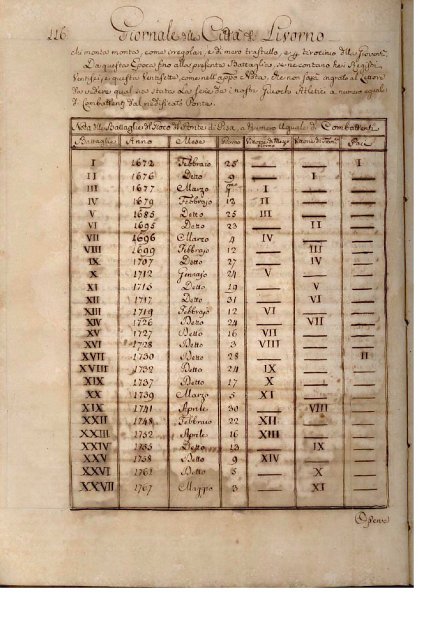 116 Giornale della Città di Livorno
chi monta monta, come irregolari, e di mero trastullo,
Da questa Epoca fino alla presente Battaglia, se ne contano
Ventisei, e questa Ventisette, come nell'
di vedere qual sia stata la serie de' nostri Giuochi Atletici a numero eguale
di Combattenti dal Ponte.
Nota delle Battaglie del Gioco del Ponte di Pisa, a Numero Uguale di Combattenti
Battaglie Anno Mese Giorno Vittorie di Mezzogiorno Vittorie di Tram.na Pace
I 1672 Febbraio 25 — — I
II 1676 Detto 9 — —
III 1677 Marzo I — —
IV 1679 Febbrajo 12 II — —
V 1685 Detto 25 III — —
VI 1695 Detto 23 — II —
VII 1696 Marzo 4 IV — —
VIII 1699 Febbrajo 12 — III —
IX 1707 Detto 27 — IV —
X 1712 Gennajo 24 V — —
XI 1716 Detto 19 — V —
XII 1717 Detto 31 — VI —
XIII 1719 Febbrajo 12 VI — —
XIV 1726 Detto 24 — VII —
XV 1727 Detto 16 VII — —
XVI 1728 Detto 3 VIII — —
XVII 1730 Detto 28 — — II
XVIII 1732 Detto 24 IX — —
XIX 1737 Detto 17 X — —
XX 1739 Marzo 5 XI — —
XIX 1741 Aprile 30 — VIII —
XXII 1748 Febbraio 22 XII — —
XXIII 1752 Aprile 16 XIII — —
XXIV 1755 Detto 13 — IX —
XXV 1758 Detto 9 XIV — —
XXVI 1761 Detto 5 — X —
XXVII 1767 Maggio 3 — XI —